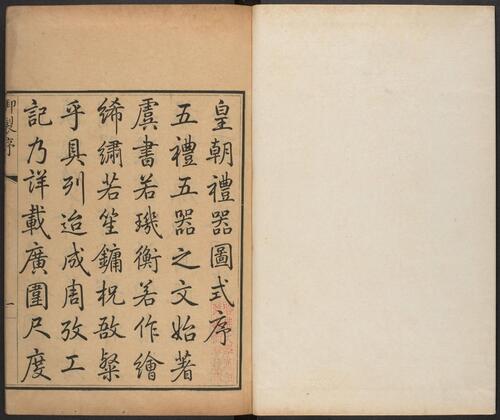 皇朝禮器圖式序
五禮五器之文始著
虞書若璣衡若作繪
絺繡若笙鏞柷敔粲
乎具列迨成周攷工
記乃詳載廣圍尺度
御製序
一